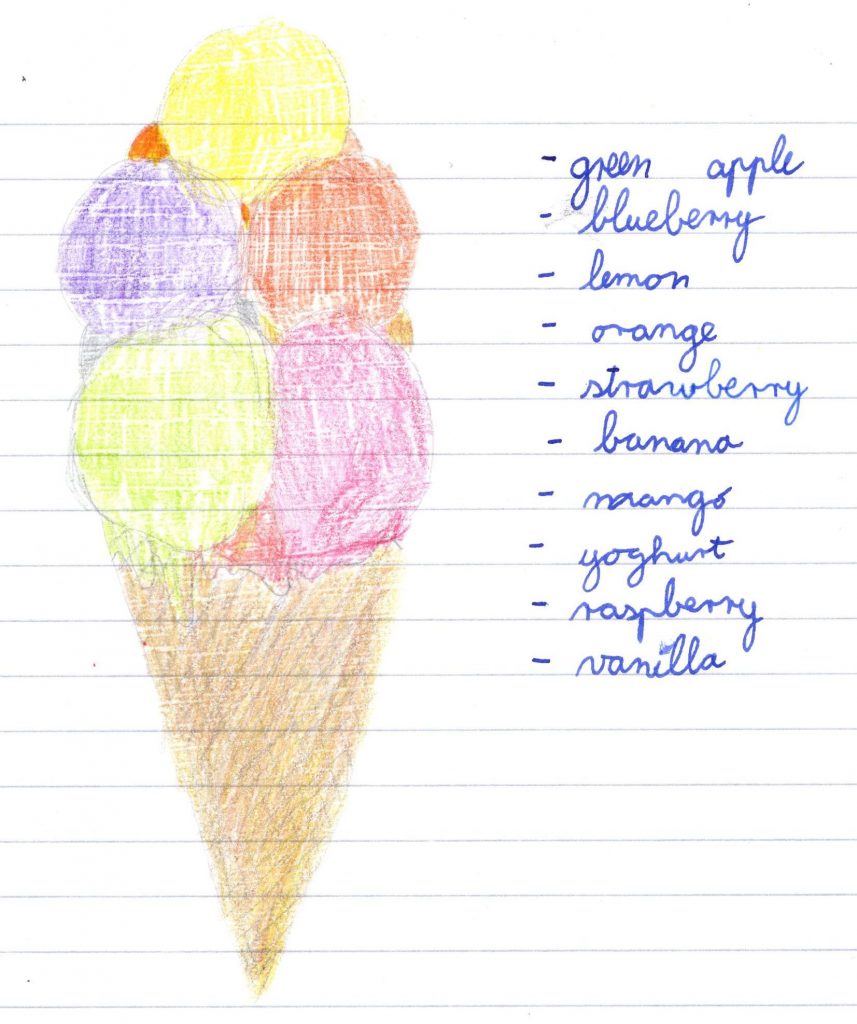 - green apple
- blueberry
- lemon
- orange
- strawberry
- banana
- mango
- yoghurt
- raspberry
- vanilla